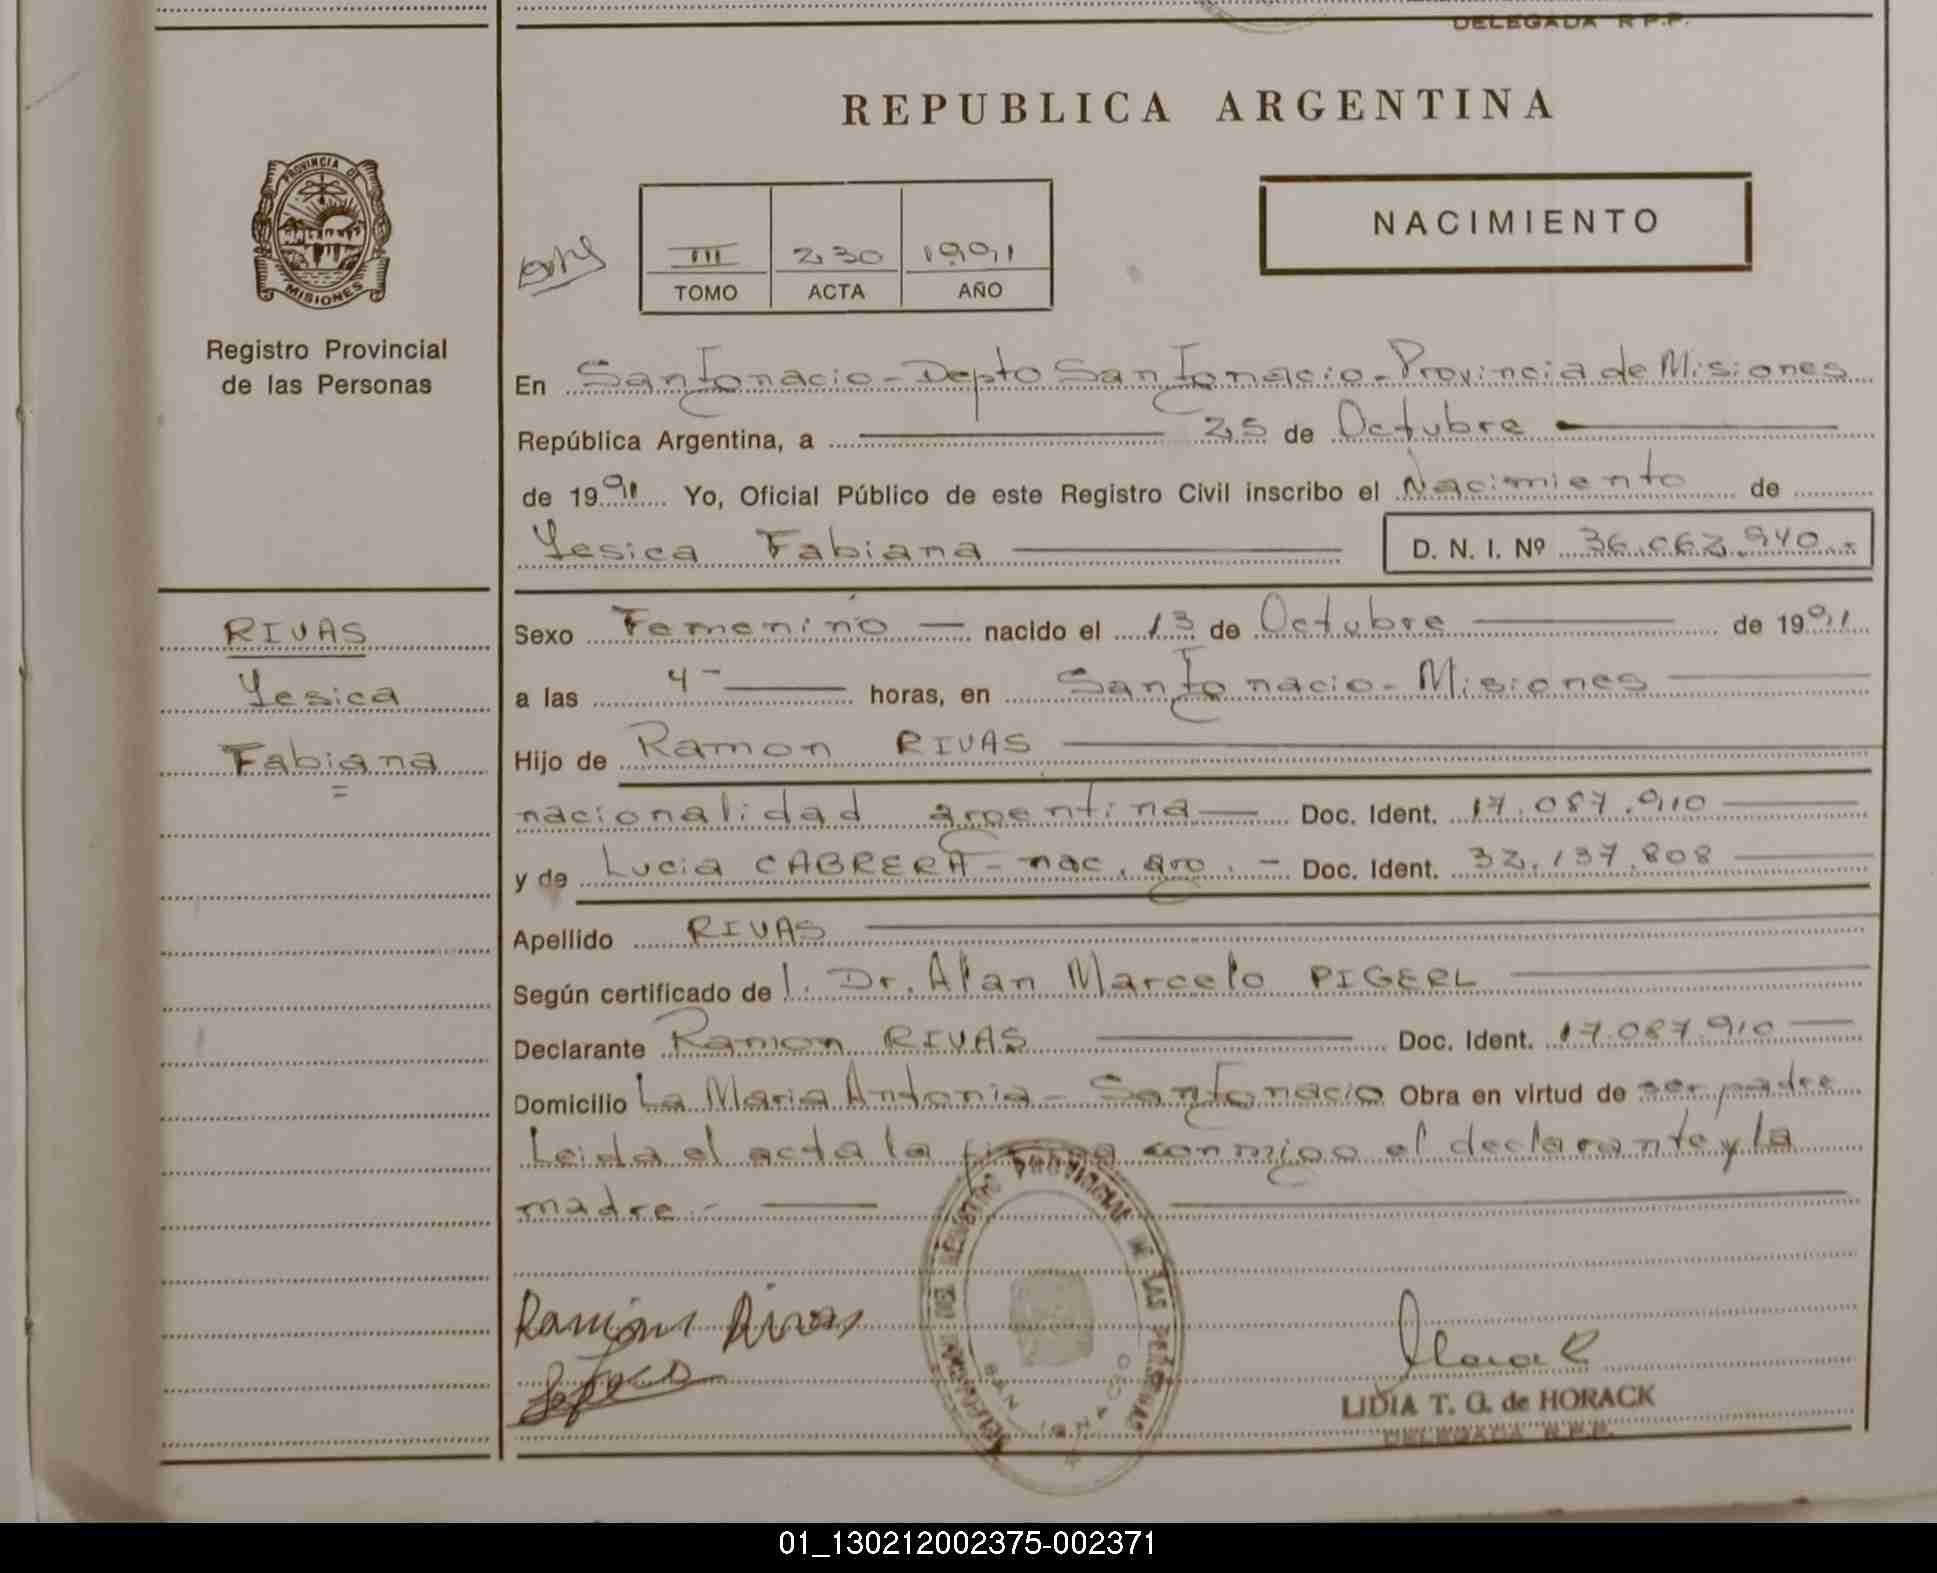 DELEGADA R.P.P.
REPUBLICA ARGENTINA
PROVINCIA DE
MISIONES
Registro Provincial
de las Personas
III 230 1991
TOMO ACTA AÑO
NACIMIENTO
En San Ignacio - Depto San Ignacio - Provincia de Misiones
República Argentina, a 25 de Octubre
de 1991 Yo, Oficial Público de este Registro Civil inscribo el Nacimiento de
Yesica Fabiana D. N. I. Nº 36.063.940.-
RIVAS
Yesica
Fabiana
Sexo Femenino — nacido el 13 de Octubre de 1991
a las 4 - horas, en San Ignacio - Misiones
Hijo de Ramon RIVAS
nacionalidad argentina — Doc. Ident. 17.087.910
y de Lucia CABRERA - nac. arg. - Doc. Ident. 32.137.808
Apellido RIVAS
Según certificado de l. Dr. Alan Marcelo PIGERL
Declarante Ramon RIVAS Doc. Ident. 17.087.910
Domicilio La Maria Antonia - San Ignacio Obra en virtud de ser padre
Leida el acta la firma conmigo el declarante y la
madre.-
REGISTRO PROVINCIAL DE LAS PERSONAS
SAN IGNACIO
Ramon Rivas
LIDIA T. G. de HORACK
DELEGADA R.P.P.
01_130212002375-002371